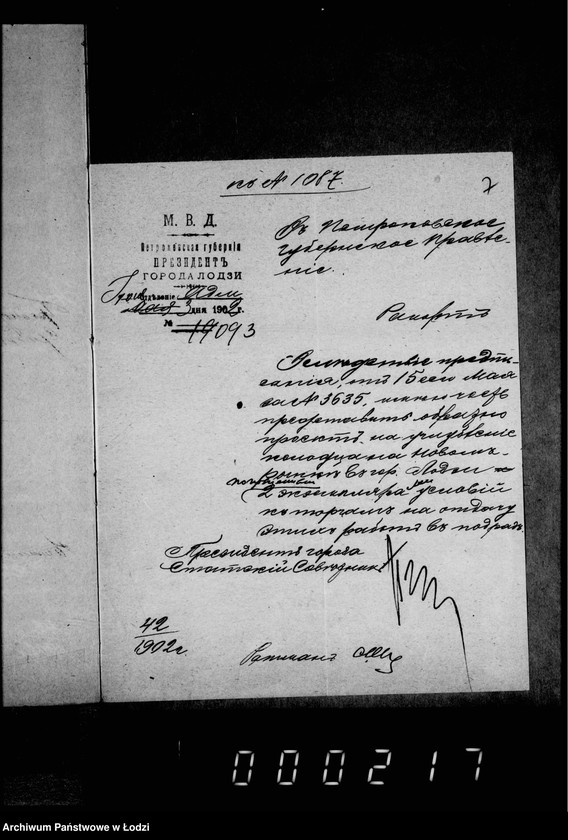 къ № 1087.
7
М. В. Д.
Петроковская губернія
ПРЕЗИДЕНТЪ
ГОРОДА ЛОДЗИ
Отдѣленіе Адм
3 дня 1902 г.
№ 093
Въ Петроковское
Губернское Правле-
ніе.
Рапортъ
Вслѣдствіе предпи-
санія, отъ 15 сего Мая
за № 3635, имѣю честь
представить обратно
проектъ на учрежденіе
колодца на Новомъ
Рынкѣ въ гор. Лодзи
2 экземпляра условій
къ торгамъ на отдачу
этихъ работъ въ подрядъ.
Президентъ города
Статскій Совѣтникъ
42
1902 г.
000217
Archiwum Państwowe w Łodzi